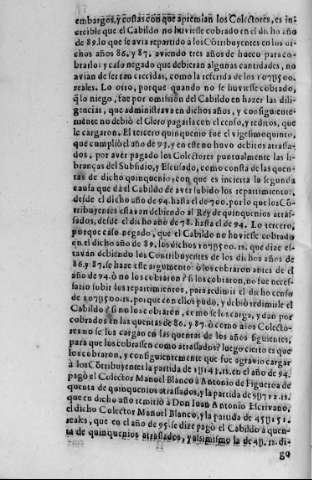 embargos, y costas con que apremian los Colectores, es in-
creible que el Cabildo no huviesse cobrado en el dicho año
de 89. lo que se avia repartido à los Contribuyentes en los di-
chos años 86. y 87. aviendo tres años de hueco para co-
brarlo: y caso negado que debieran algunas cantidades, no
avian de ser tan crecidas, como la referida de los 107U500.
reales. Lo otro, porque quando no se huviesse cobrado,
q̃ lo niego, fue por omission del Cabildo en hazer las dili-
gencias, que administrava en dichos años, y consiguiente-
mente no debiò el Clero pagarla con el censo, y reditos, que
le cargaron. El tercero quinquenio fue el vigesimoquinto,
que cumpliò el año de 93. y en este no hovo debitos atrassa-
dos, por aver pagado los Colectores puntualmente las li-
branças del Subsidio, y Escusado, como consta de las quen-
tas de dicho quinquenio, con que es incierta la segunda
causa que dà el Cabildo de aver subido los repartimientos,
desde el dicho año de 94. hasta el de 700. por lo que los Cõ-
tribuyentes estavan debiendo al Rey de quinquenios atras-
sados, desde el dicho año de 78. hasta el de 94. Lo tercero,
porque caso negado, que el Cabildo no huviesse cobrado
en el dicho año de 89. los dichos 107U500. rs. que dize es-
tavàn debiendo los Contribuyentes de los dichos años de
86. y 87. se haze este argumento: ò los cobraron antes de el
año de 94. ò no los cobraron? si los cobraron, no fue neces-
sario subir los repartimientos, para redimir el dicho censo
de 107U500. rs. porque con ellos pudo, y debiò redimirle el
Cabildo: si no los cobraron, como se los carga, y dan por
cobrados en las quentas de 86. y 87. ò como à los Colecto-
res no se los cargan en las quentas de los años siguientes,
para que los cobrassen como atrassados? luego cierto es que
los cobraron, y consiguientemente que fue agravio cargar
à los Contribuyentes la partida de 11U143. rs. en el año de 94.
pagò el Colector Manuel Blanco à Antonio de Figueroa de
quenta de quinquenios atrassados, y la partida de 9U712. rs.
que en dicho año remitiò à Don Juan Antonio Escrivano,
el dicho Colector Manuel Blanco, y la partida de 45U151.
reales, que en el año de 95. se dize pagò el Cabildo à quen-
ta de quinquenios atrassados, y assimismo la de 4U. rs. di-
go